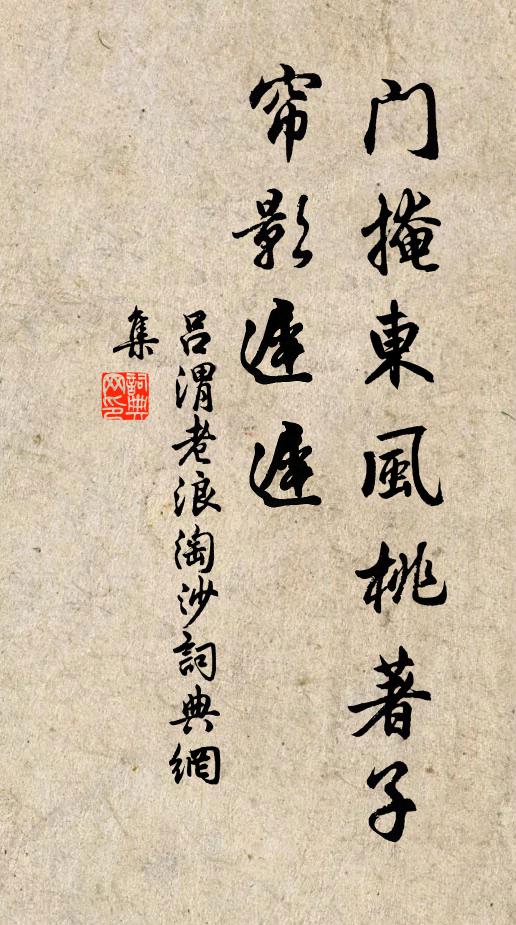 门掩東風桃著子
帘影遲遲
吕渭老浪淘沙詞典網
集
詞典网印